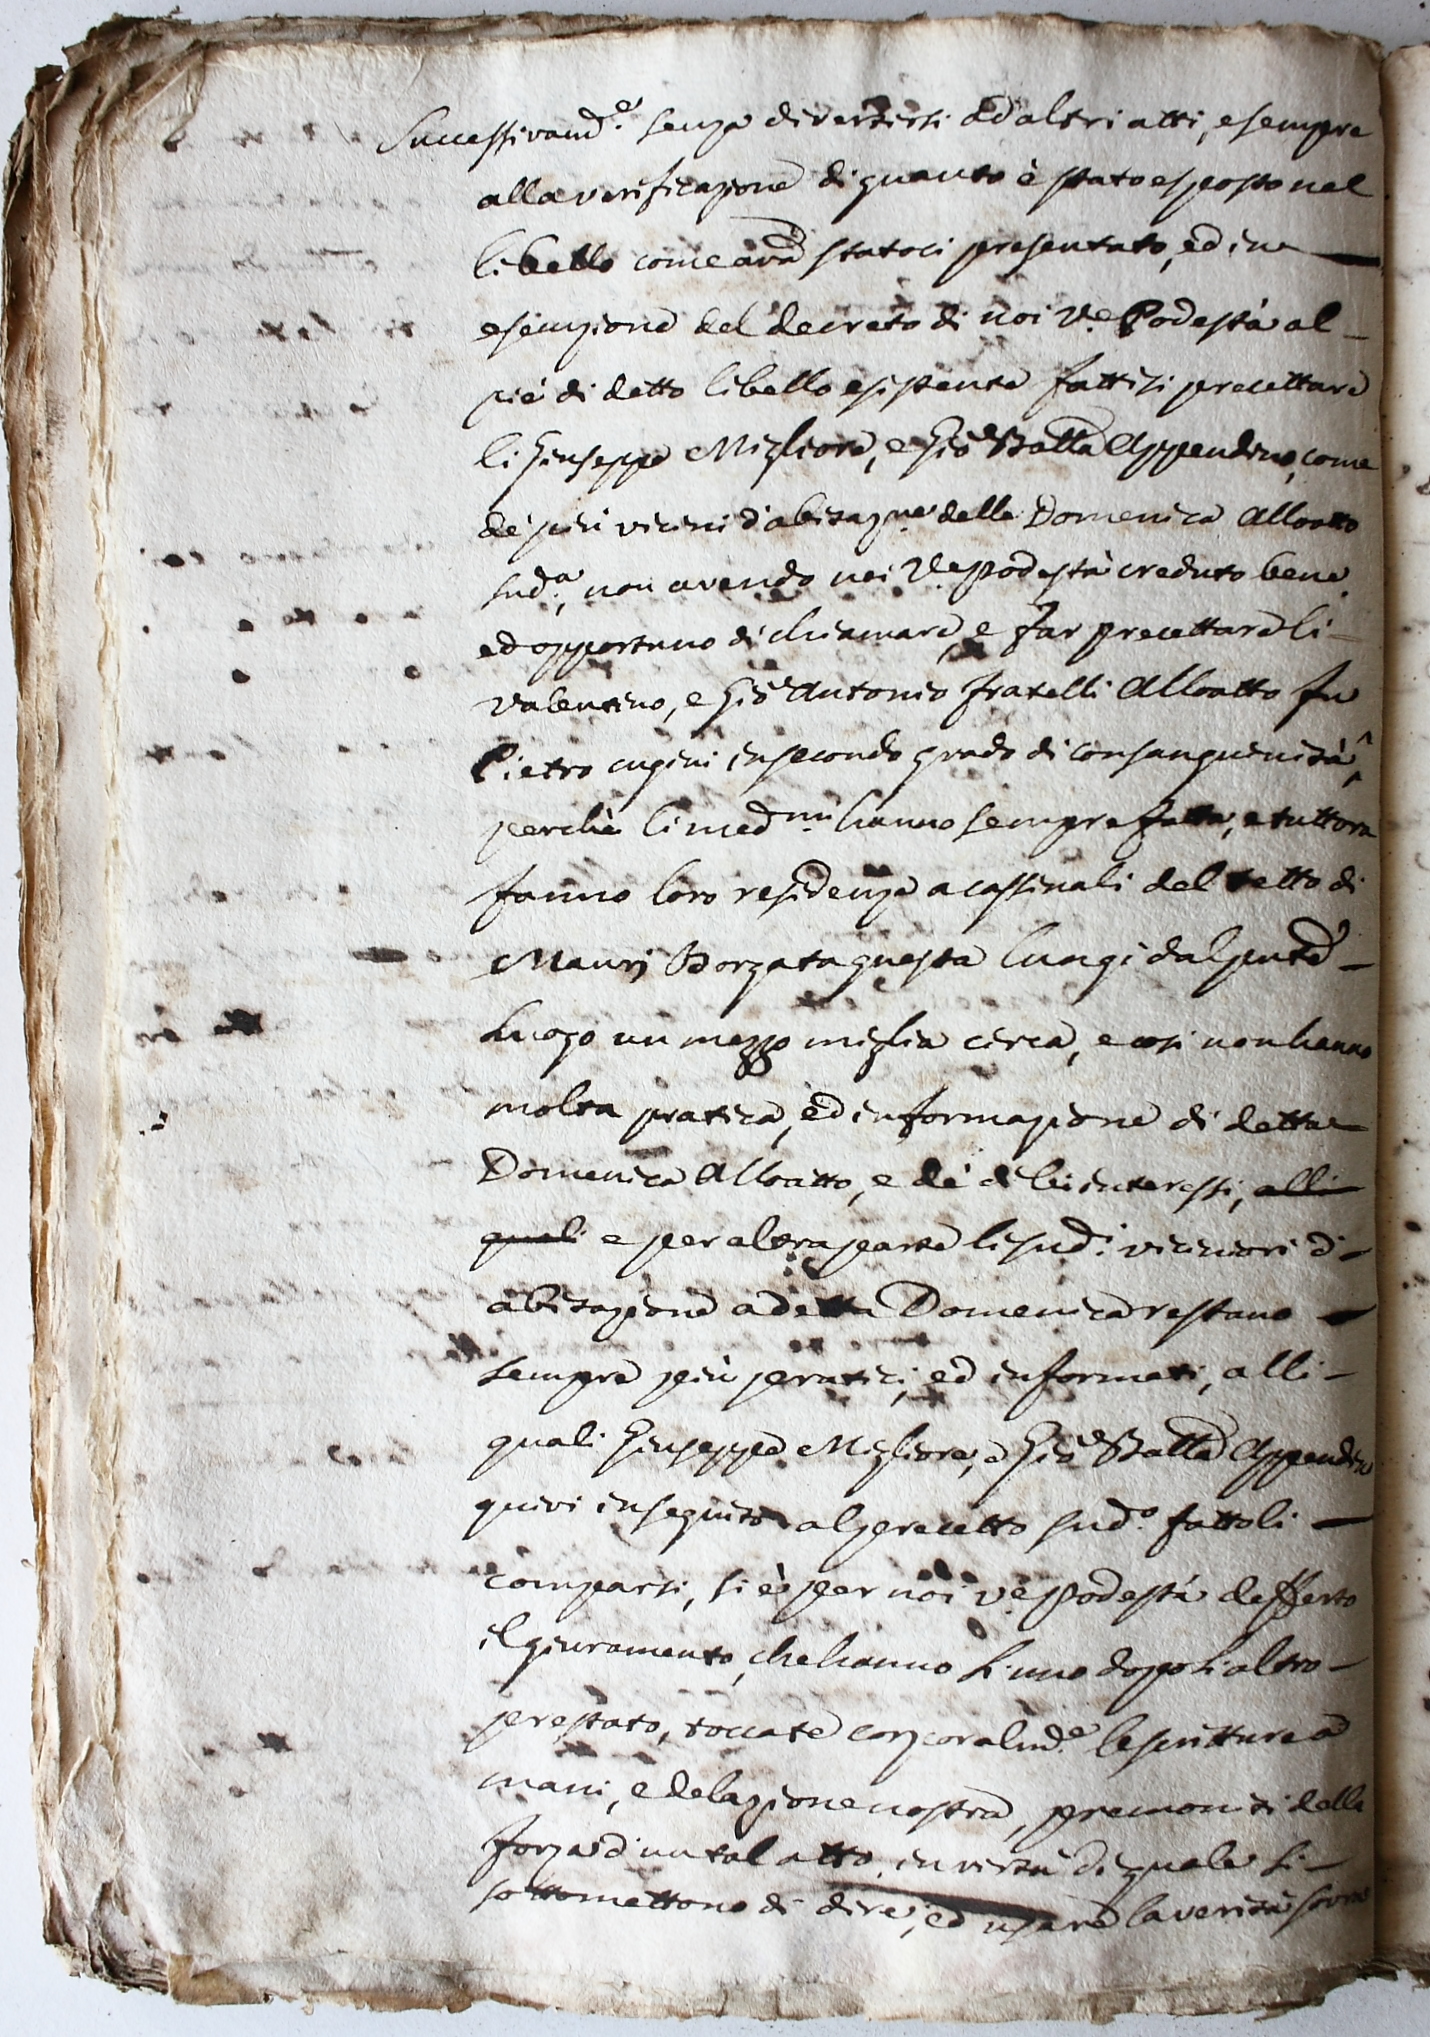 Successivam.e senza divertirsi ad altri atti, e sempre
alla verificazione di quanto è stato esposto nel
libello come avanti statoci presentato, ed in
esecuzione del decreto di noi V.e Podestà al
piè di detto libello esistente fattisi precettare
li Giuseppe Migliore, e Gio Batta Appendino, come
de più vicini d'abitaz.ne della Domenica Alloatto
sud.a, non avendo noi V.e Podestà creduto bene
ed opportuno di chiamare, e far precettare li
Valentino, e Gio Antonio fratelli Alloatto fu
Pietro cugini in secondo grado di consanguinità,
perchè li med.mi hanno sempre fatta, e tuttora
fanno loro residenza a cassinali del tetto di
Mauri Borgata questa lungi dal pnte
Luogo un mezzo miglia circa, e così non hanno
molta pratica, ed informazione di detta
Domenica Alloatto, e de di lei interessi, alli
quali e per altra parte li sud.i viciniori d'
abitazione a detta Domenica restano
sempre più pratici, ed informati, alli
quali Giuseppe Migliore, e Gio Batta Appendino
quivi in seguito al precetto sud.o fattoli
comparsi, si è per noi V.e Podestà defferto
il giuramento, che hanno li uno doppo li altro
prestato, toccate corporalm.e le scritture a
mani, e delazione nostra, premoniti della
forza d'un tal atto, in virtù di quale si
sottomettono di dire, ed usare la verità sovra